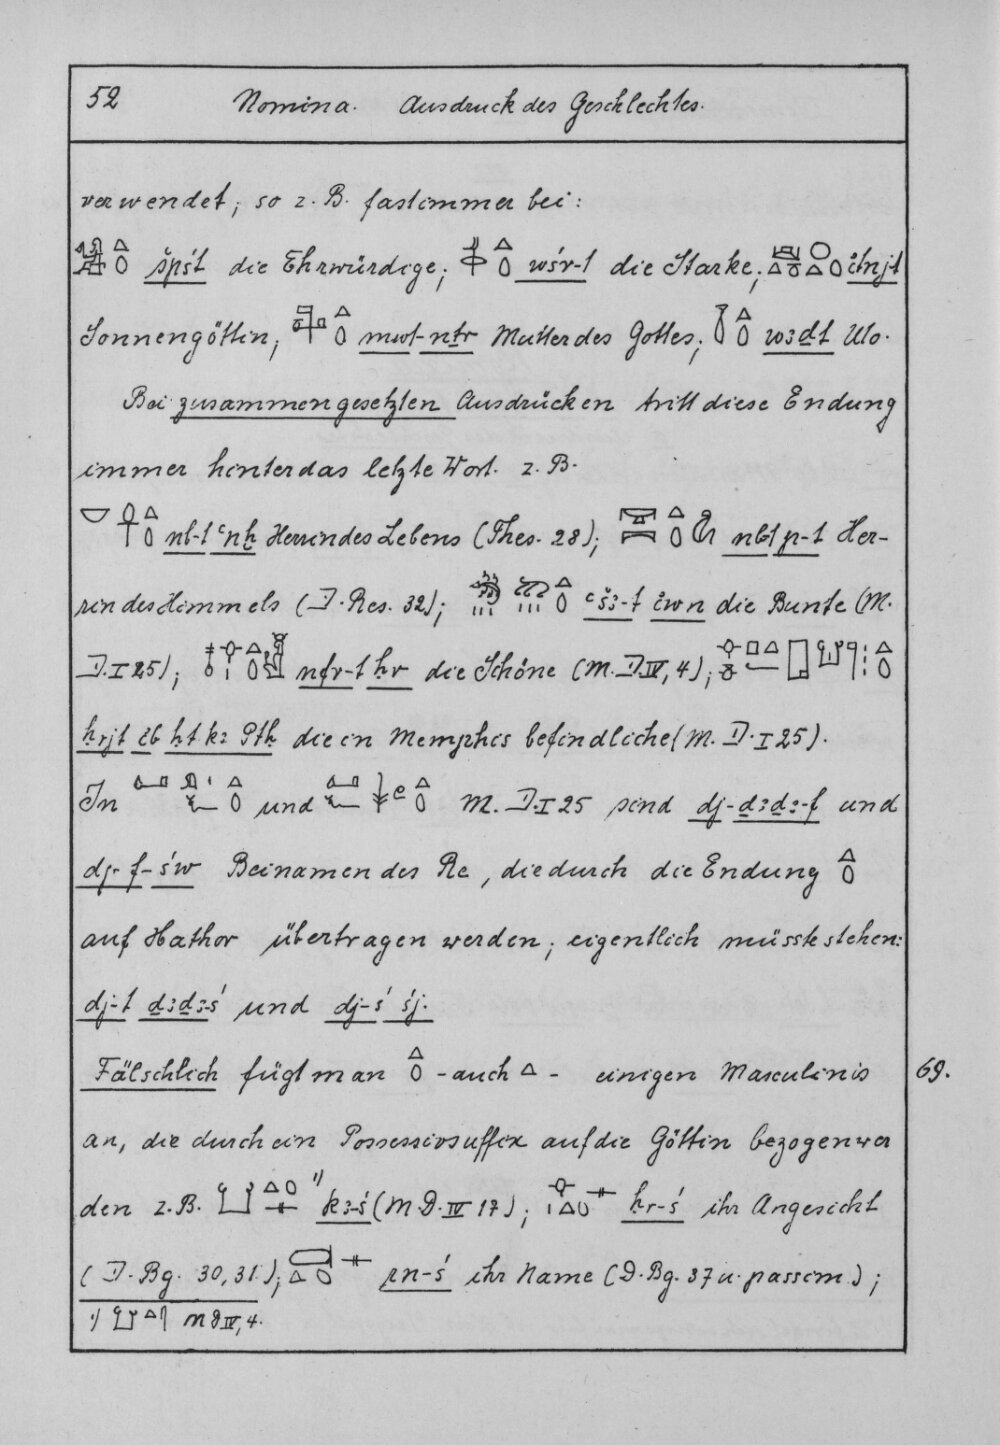 52 Nomina. Ausdruck des Geschlechtes.
verwendet, so z. B. fast immer bei:
špśt die Ehrwürdige; wśr-t die Starke; itnjt
Sonnengöttin; mwt-nṯr Mutter des Gottes; wꜣḏt Uto.
Bei zusammengesetzten Ausdrücken tritt diese Endung
immer hinter das letzte Wort. z. B.
nb-t ꜥnḫ Herrin des Lebens (Thes. 28); nbt p-t Her-
rin des Himmels (D. Res. 32); ꜥšꜣ-t iwn die Bunte (M.
D. I 25); nfr-t ḥr die Schöne (M. D. IV, 4);
ḥrjt ib ḥt kꜣ Ptḥ die in Memphis befindliche (M. D. I 25).
In und M. D. I 25 sind dj-ḏꜣḏꜣ-f und
dj-f-św Beinamen des Re, die durch die Endung
auf Hathor übertragen werden; eigentlich müsste stehen:
dj-t ḏꜣḏꜣ-ś und dj-ś śj.
Fälschlich fügt man - auch - einigen Masculinis 69.
an, die durch ein Possessivsuffix auf die Göttin bezogen wer
den z. B. ¹⁾ kꜣ-ś (M. D. IV 17); ḥr-ś ihr Angesicht
(D. Bg. 30, 31); rn-ś ihr Name (D. Bg. 37 u. passim);
¹⁾ MD IV, 4.